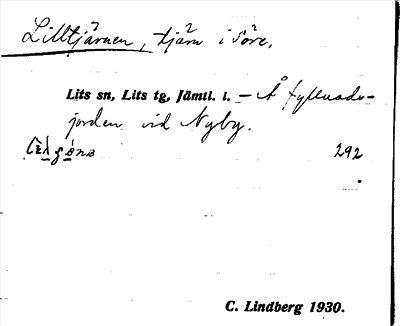 Lilltjärnen, tjärn i söre,
Lits sn, Lits tg, Jämtl. l. – Å fyllnads-
jorden vid Nyby.
292
C. Lindberg 1930.